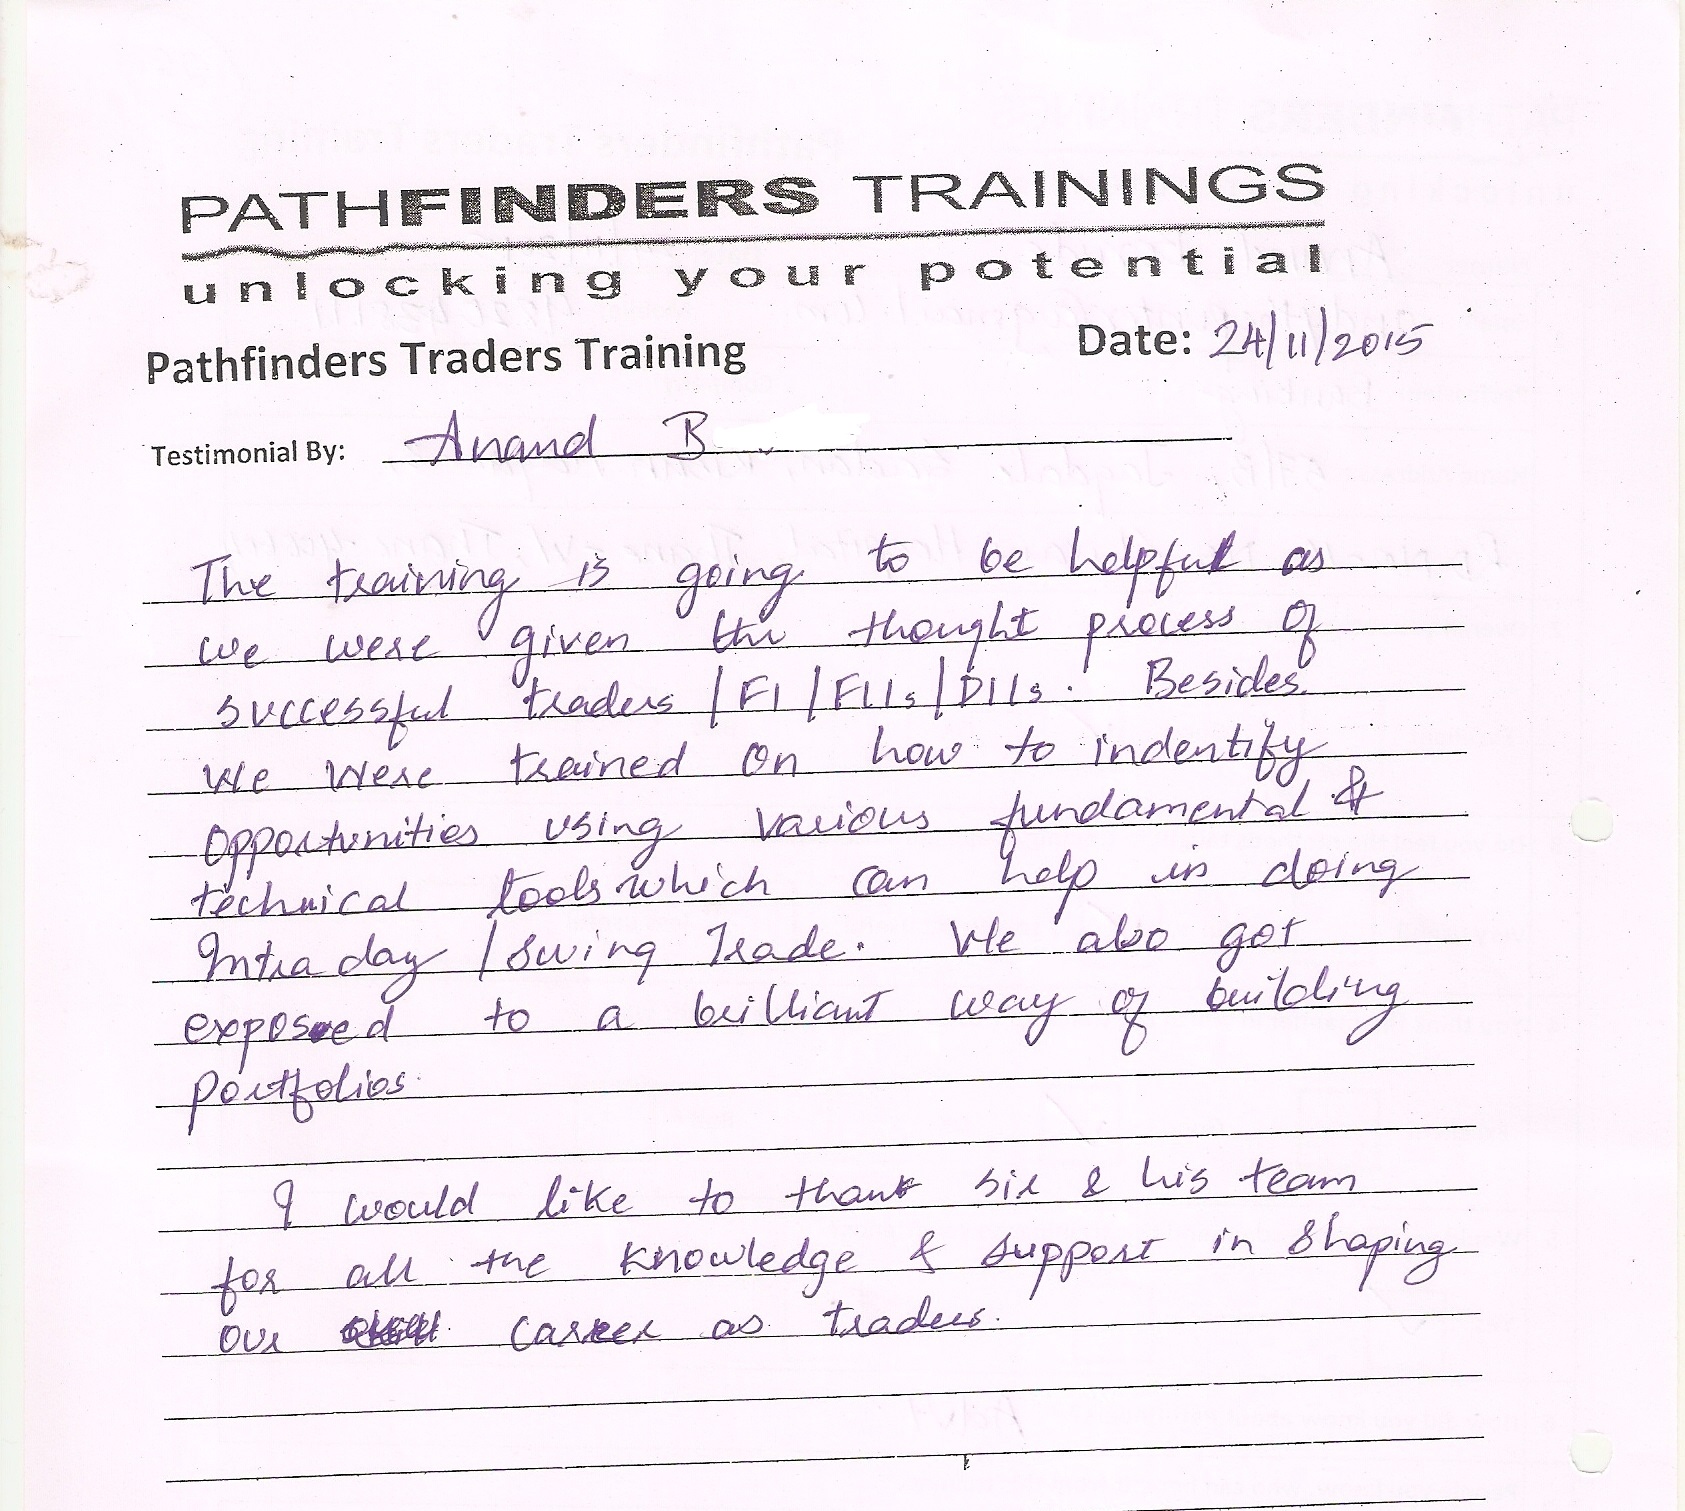 PATHFINDERS TRAININGS
unlocking your potential
Pathfinders Traders Training Date: 24/11/2015
Testimonial By: Anand B
The training is going to be helpful as
we were given the thought process of
successful traders /FI/FIIs/DIIs. Besides
we were trained on how to indentify
opportunities using various fundamental &
technical tools which can help in doing
Intra day /Swing Trade. We also got
exposed to a brilliant way of building
portfolios.
I would like to thank sir & his team
for all the knowledge & support in shaping
our career as traders.